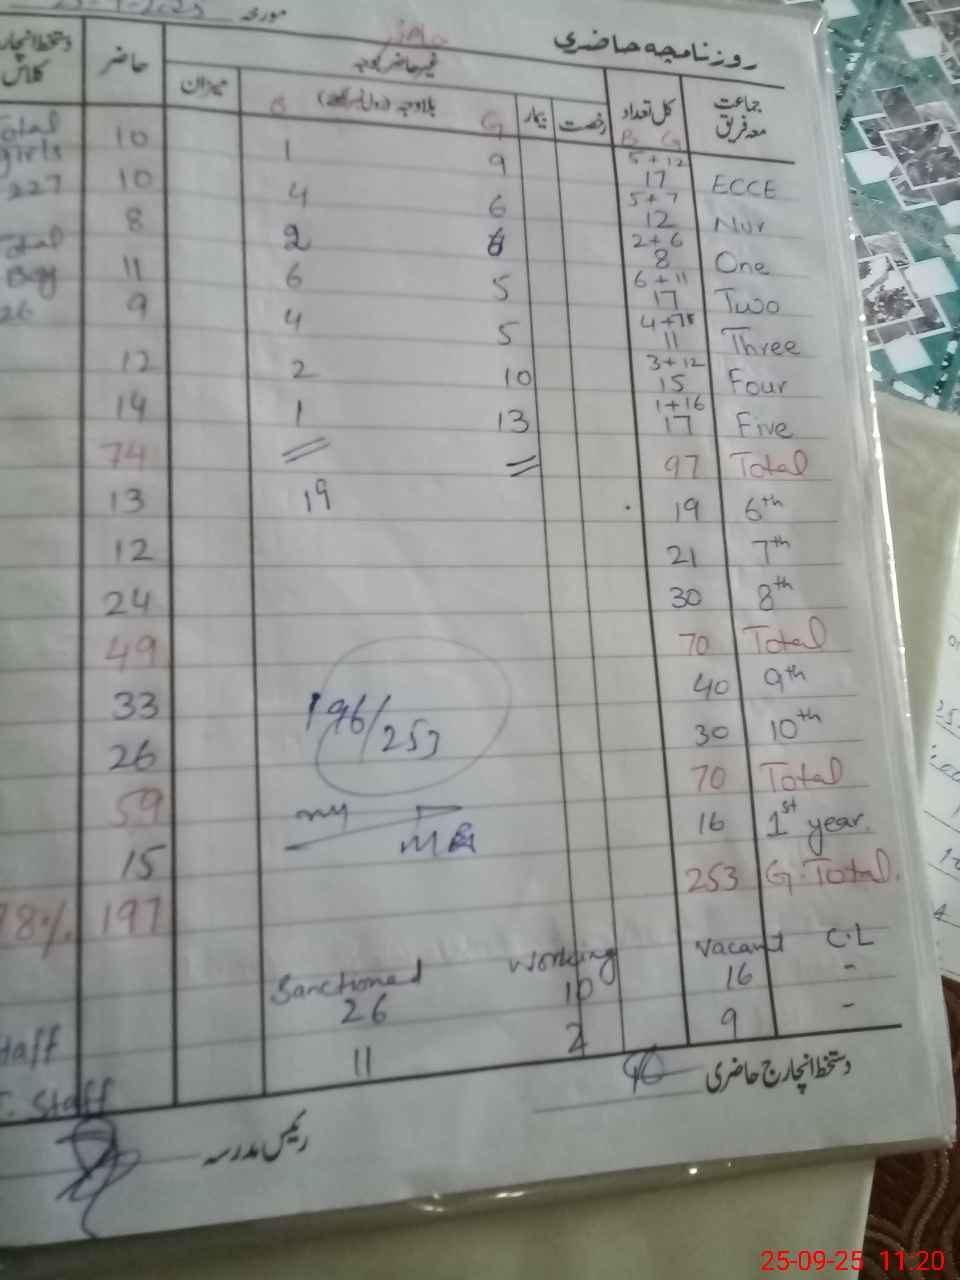 مورخہ
روزنامچہ حاضری
جماعت معہ فریق | کل تعداد | رخصت | بیمار | بلاوجہ (رول نمبر لکھیے) | میزان | حاضر
غیر حاضر کوچہ
حاضر
B G | G | B
5+12
ECCE 17 9 1 10
5+7
Nur 12 6 4 10
2+6
One 8 6 2 8
6+11
Two 17 5 6 11
Three 11 5 4 9
3+12
Four 15 10 2 12
1+16
Five 17 13 1 14
Total 97 74
6th 19 19 13
7th 21 12
8th 30 24
Total 70 49
9th 40 33
10th 30 26
Total 70 59
1st year. 16 15
G.Total. 253 197
196/253
Total
girls
227
Total
Boy
26
Sanctioned Working Vacant C.L
26 10 16 -
11 2 9 -
Staff
دستخط انچارج حاضری
رئیس مدرسہ
25-09-25 11:20